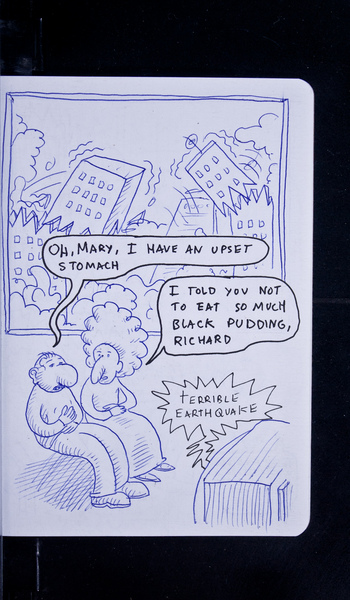 OH, MARY, I HAVE AN UPSET
STOMACH
I TOLD YOU NOT
TO EAT SO MUCH
BLACK PUDDING,
RICHARD
TERRIBLE
EARTHQUAKE